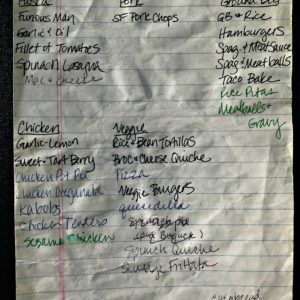 Pasta
Furious Man
Garlic & Oil
Fillet of Tomatoes
Spinach Lasagna
Mac & Cheese
Pork
SF Pork Chops
Ground
GB & Rice
Hamburgers
Spag. & Meat Sauce
Spag & Meatballs
Taco Bake
Rice Pitas
Meatballs &
Gravy
Chicken
Garlic-Lemon
Sweet & Tart Berry
Chicken Pot Pie
Chicken Oreganata
Kabobs
Chicken Tenders
Sesame Chicken
Veggie
Rice & Bean Tortillas
Broc & Cheese Quiche
Pizza
Veggie Burgers
quesadilla
Spinach Quiche
Sausage Frittata